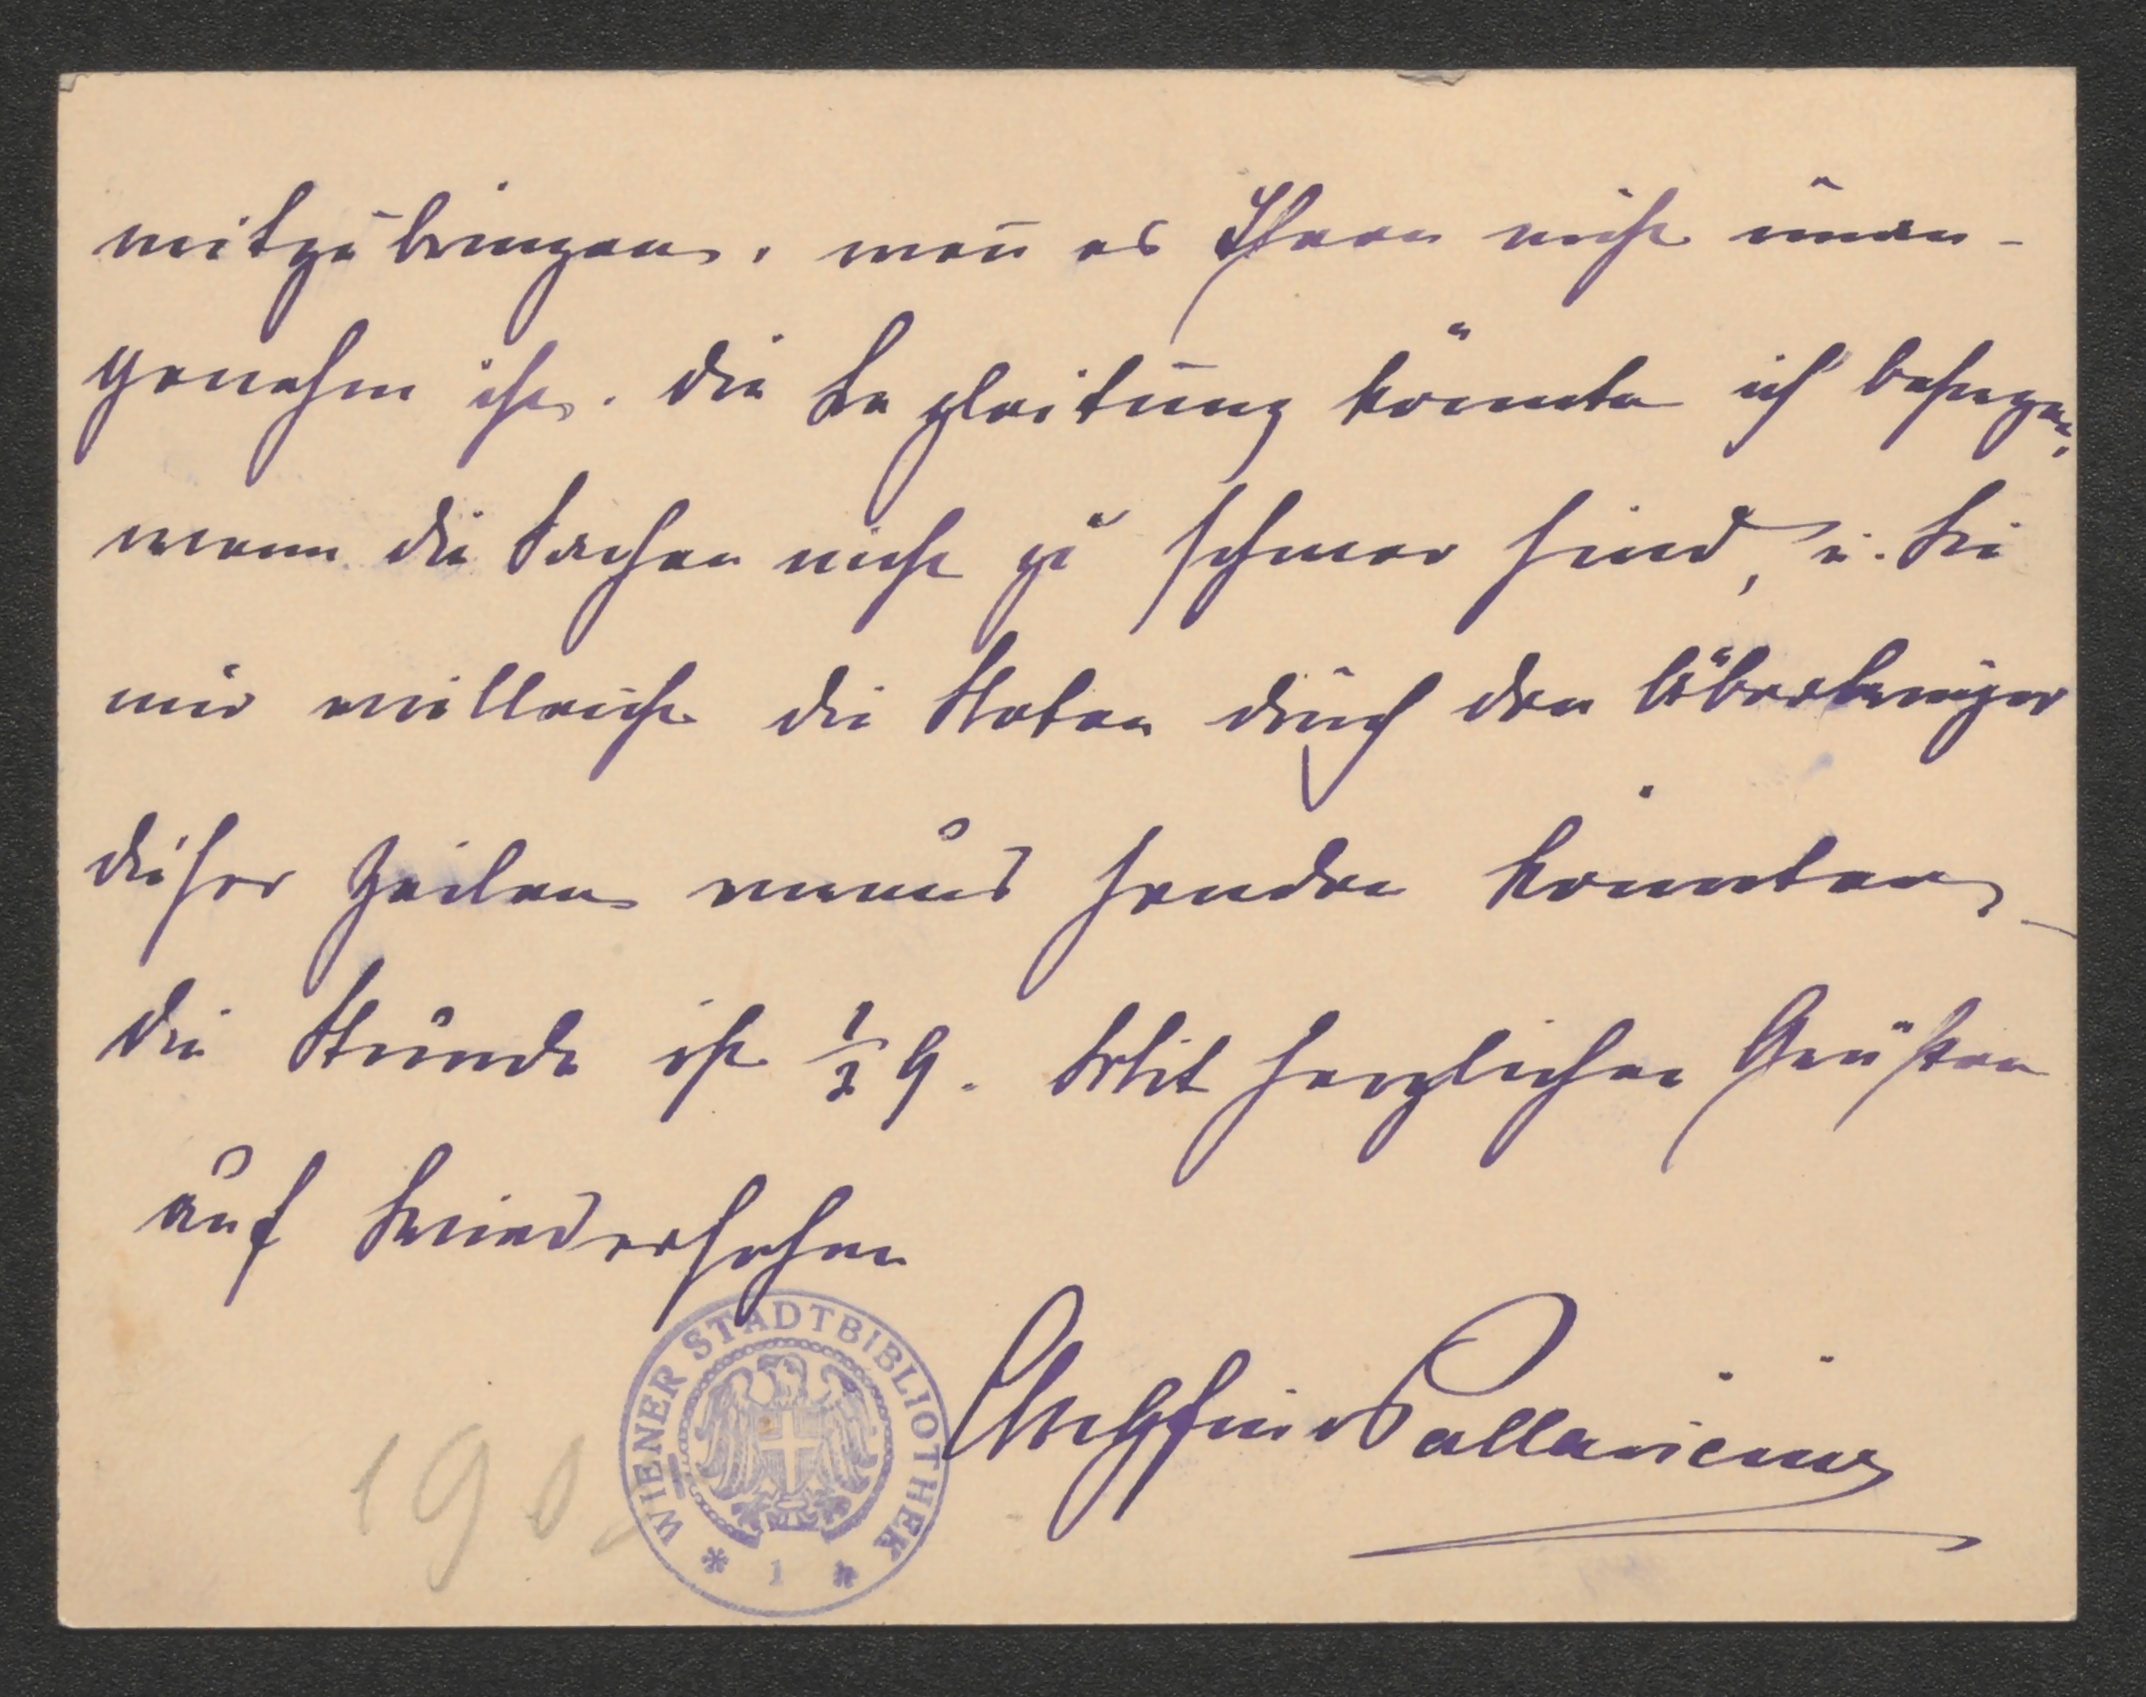 mitzubringen, wen̄ es Ihnen nicht unan-
genehm ist. Die Begleitung könnte ich besorgen,
wenn die Sachen nicht zu schwer sind, u. Sie
mir vielleicht die Noten durch den Überbringer
dieser Zeilen senden könnten
Die Stunde ist ½ 9. Mit herzlichen Grüßen
auf Wiedersehen
WIENER STADTBIBLIOTHEK
* 1 *
Pallavicini
190